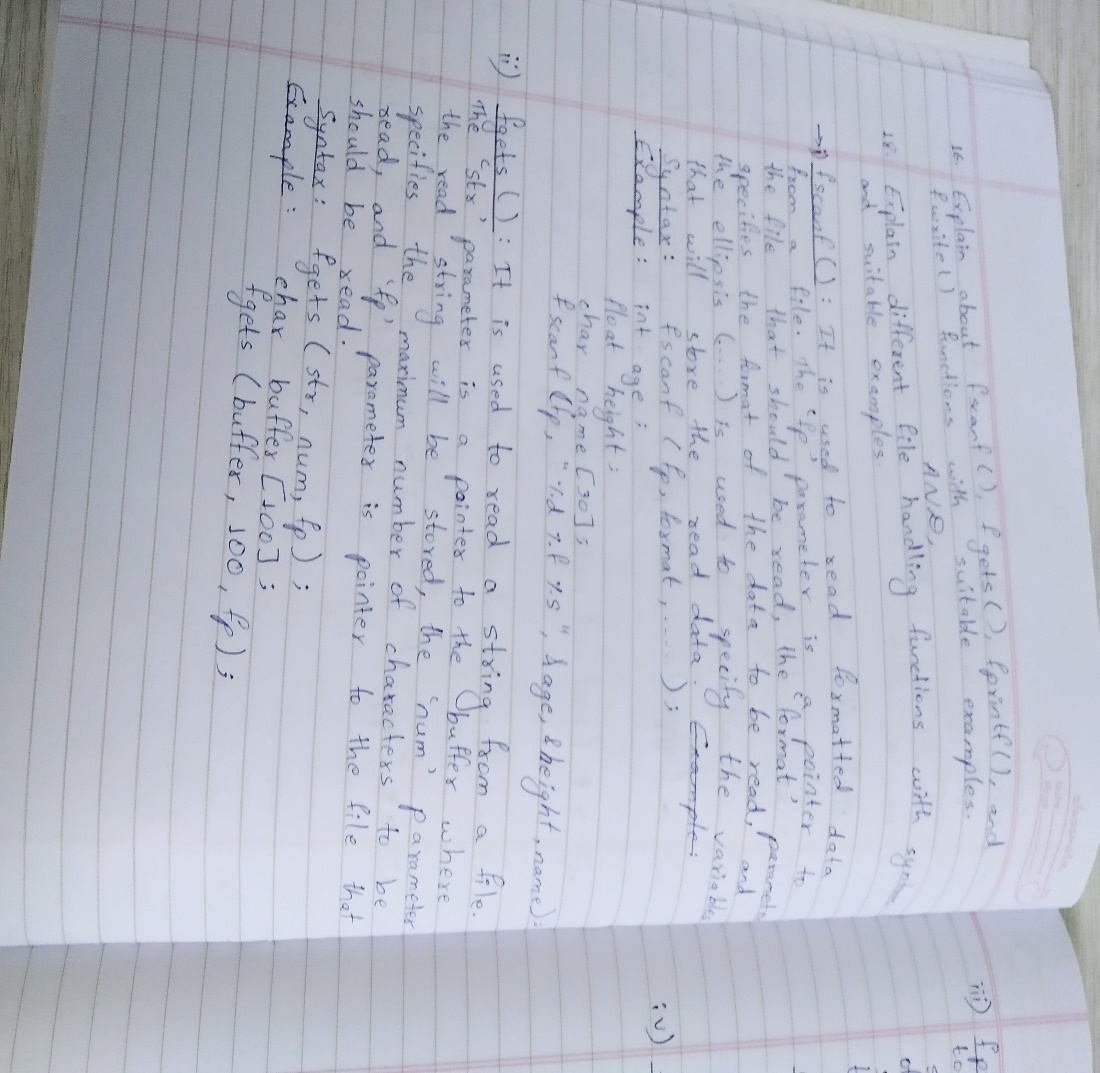 16. Explain about fscanf(), fgets(), fprintf(), and
fwrite() functions with suitable examples.
AND,
18. Explain different file handling functions with
and suitable examples.
→i) fscanf(): It is used to read formatted data
from a file. The 'fp' parameter is a pointer to
the file that should be read, the 'format'
specifies the format of the data to be read, and
the ellipsis (....) is used to specify the
that will store the read data. Example:
Syntax: fscanf(fp, format, .....);
Example: int age;
float height;
char name[30];
fscanf(fp, "%d %f %s", &age, &height, name);
ii) fgets(): It is used to read a string from a file.
The 'str' parameter is a pointer to the buffer where
the read string will be stored, the 'num' parameter
specifies the maximum number of characters to be
read, and 'fp' parameter is pointer to the file that
should be read.
Syntax: fgets(str, num, fp);
Example: char buffer[100];
fgets(buffer, 100, fp);
iii) fp
to
iv)